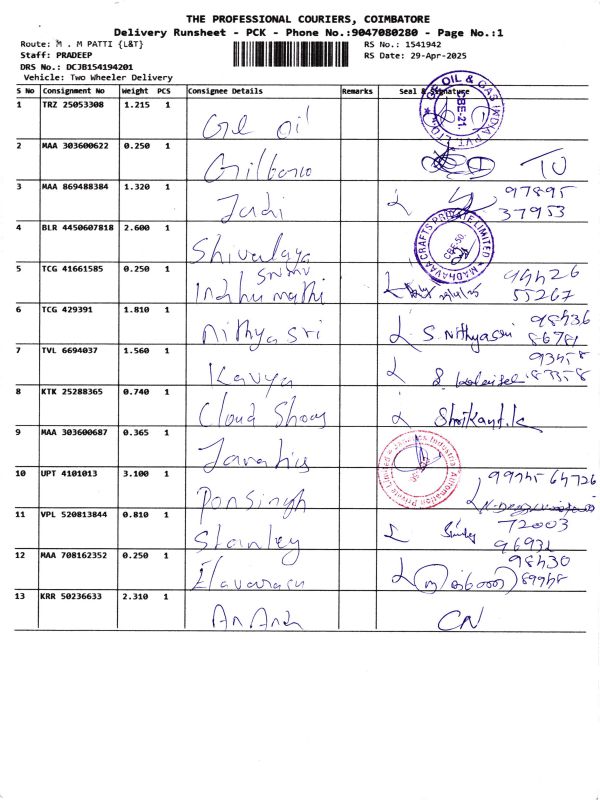 THE PROFESSIONAL COURIERS, COIMBATORE
Delivery Runsheet - PCK - Phone No.:9047080280 - Page No.:1
Route: M . M PATTI {L&T} RS No.: 1541942
Staff: PRADEEP RS Date: 29-Apr-2025
DRS No.: DCJB154194201
Vehicle: Two Wheeler Delivery
S No Consignment No Weight PCS Consignee Details Remarks Seal & Signature
1 TRZ 25053308 1.215 1 Ge oil
2 MAA 303600622 0.250 1 Gilbarco
3 MAA 869488384 1.320 1 Jadi 97895
37953
4 BLR 4450607818 2.600 1 Shivalaya
MADHAVAACRAFTS PRIVATE LIMITED
CBE-50.
5 TCG 41661585 0.250 1 Indhu mathi
55267
6 TCG 429391 1.810 1 Nithyasri S. Nithyasri 98436
86781
7 TVL 6694037 1.560 1 Kavya 93458
83358
8 KTK 25288365 0.740 1 Cloud Shoes Shrikant.k
9 MAA 303600687 0.365 1
10 UPT 4101013 3.100 1 Ponsingh
11 VPL 520813844 0.810 1 Stanley 72003
96932
12 MAA 708162352 0.250 1 Elavarasu 98430
89948
13 KRR 50236633 2.310 1 Anand CN